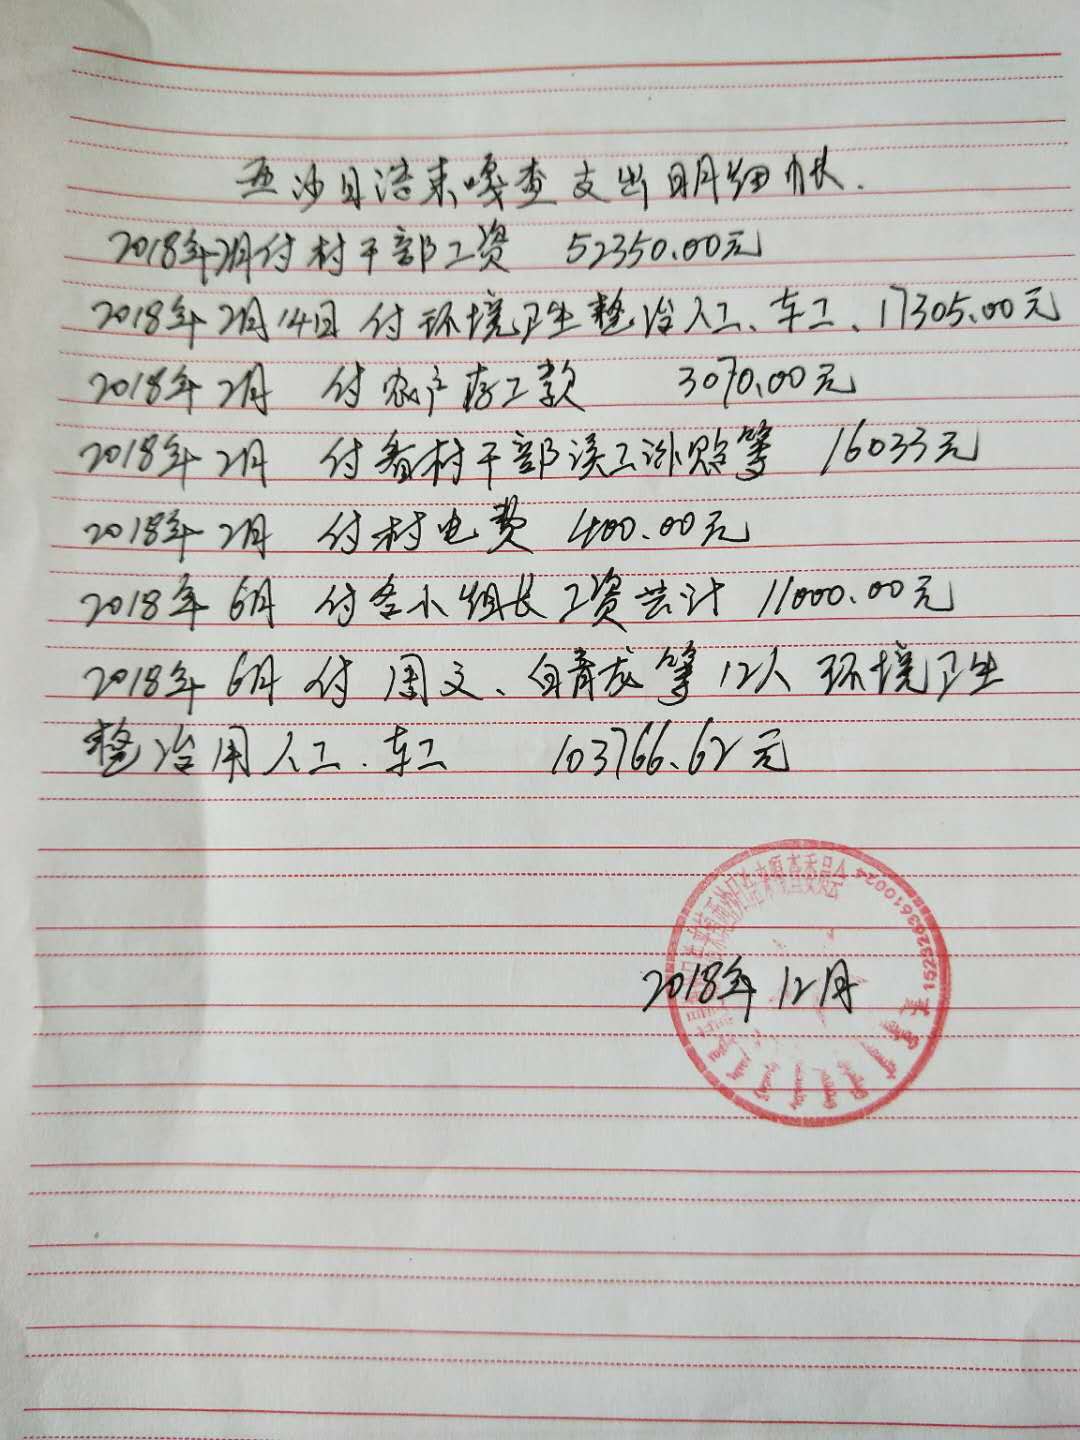 西沙日浩来嘎查支出明细帐.
2018年2月付村干部工资 52350.00元
2018年2月14日付环境卫生整治人工、车工、17305.00元
2018年2月 付农户存工款 3070.00元
2018年2月 付看村干部误工补贴等 16033元
2018年2月 付村电费 400.00元
2018年6月 付各小组长工资共计 11000.00元
2018年6月 付周文、白青龙等12人环境卫生
整治用人工.车工 103766.62元
2018年12月
1523263610024